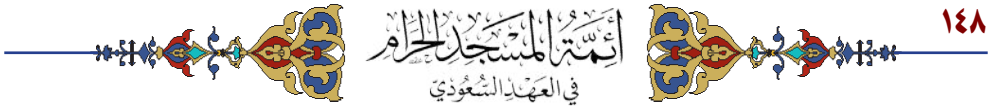 ١٤٨
أَئِمَّةُ المَسْجِدِ الحَرَامِ
في العَهْدِ السُّعُودِيّ